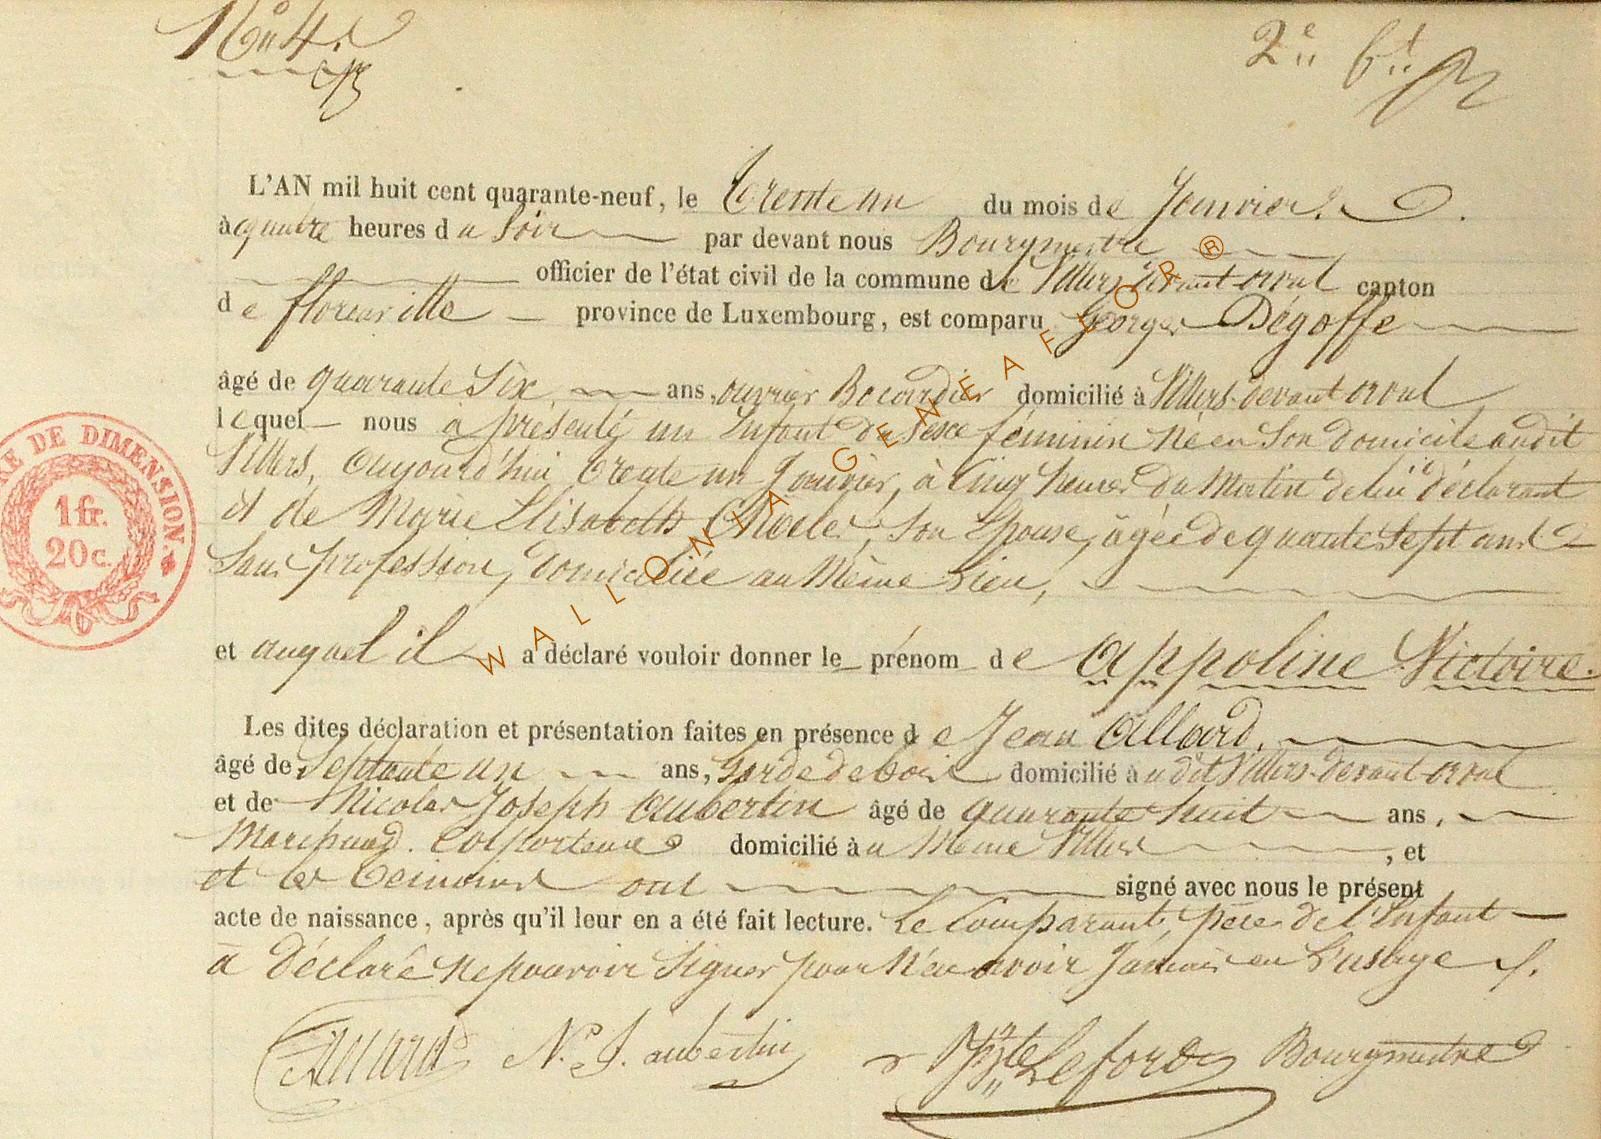 N° 4.
2e ft
L'AN mil huit cent quarante-neuf, le trente un du mois de Janvier.
à quatre heures du Soir par devant nous Bourgmestre
officier de l'état civil de la commune de Villers devant orval canton
de florenville province de Luxembourg, est comparu Georges Dégoffe
âgé de quarante Six ans, ouvrier Bocardier domicilié à Villers-devant orval
lequel nous a présenté un Enfant du Sexe féminin né en Son domicile audit
Villers, aujourd'hui trente un Janvier, à Cinq heures du Matin de lui déclarant
et de Marie Elisabeth, Son Epouse, âgée de quarante Sept ans
Sans profession, domiciliée au Même Lieu,
et auquel il a déclaré vouloir donner le prénom de Appoline Victoire.
Les dites déclaration et présentation faites en présence de Jean Allard,
âgé de Septante un ans, Garde de bois domicilié audit Villers-devant orval
et de Nicolas Joseph Aubertin âgé de quarante huit ans,
Marchand Colporteur domicilié au Même Villers, et
et les témoins ont signé avec nous le présent
acte de naissance, après qu'il leur en a été fait lecture. Le Comparant, père de l'Enfant
a déclaré ne pouvoir Signer pour N'en avoir Jamais eu L'usage
Allard N. J. aubertin Lefort Bourgmestre
RE DE DIMENSION.
1 fr.
20 c.
WALLONIA GENEAFLOR ®